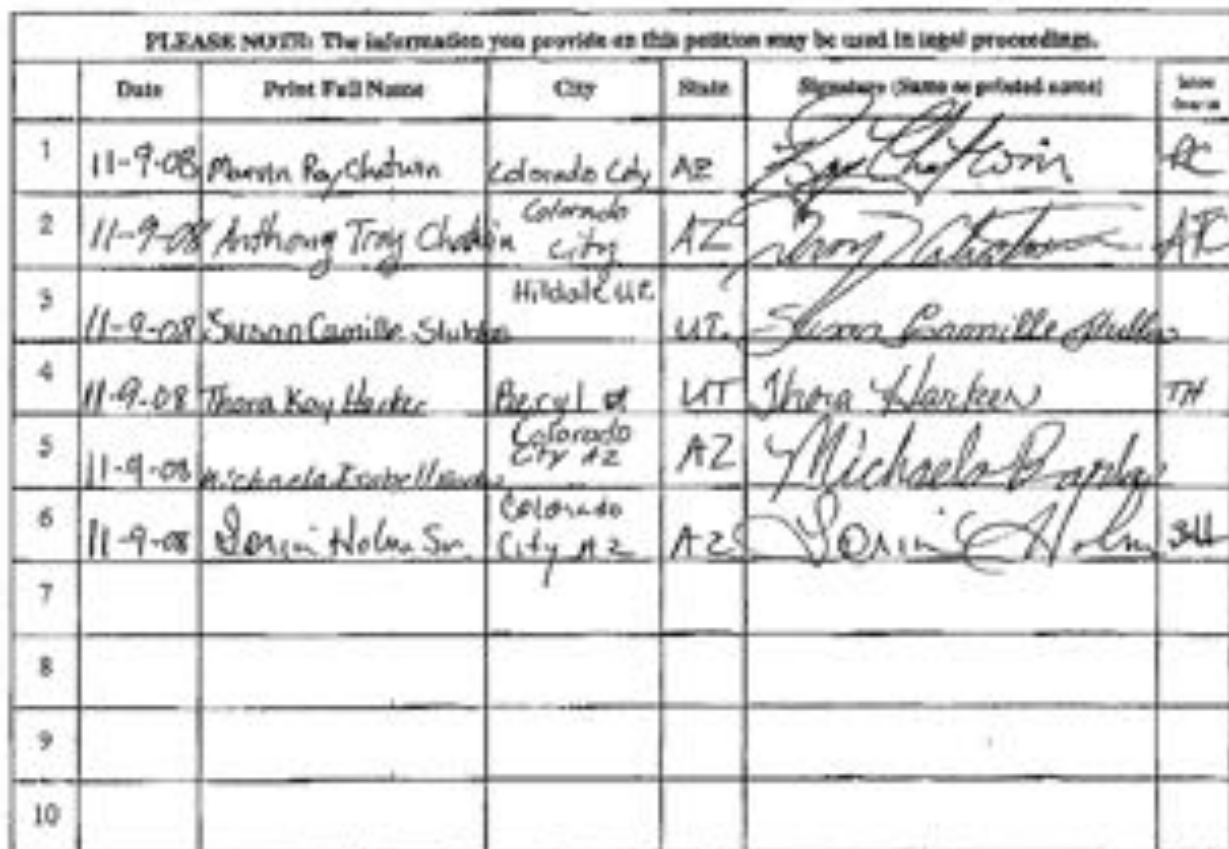 PLEASE NOTE: The information you provide on this petition may be used in legal proceedings.
Date Print Full Name City State Signature (Same as printed name)
1 11-9-08 Marvin Ray Chatwin Colorado City AZ Ray Chatwin RC
2 11-9-08 Anthony Troy Chatwin Colorado City AZ Troy
3 11-9-08 Susan Camille Hildale UT. UT. Susan Camille
4 11-9-08 Thora Kay Harker Beryl UT Thora Harker TH
5 11-9-08 Michaela Colorado City AZ AZ Michaela
6 11-9-08 Lorin Holm Sr. Colorado City AZ AZ Lorin Holm
7
8
9
10